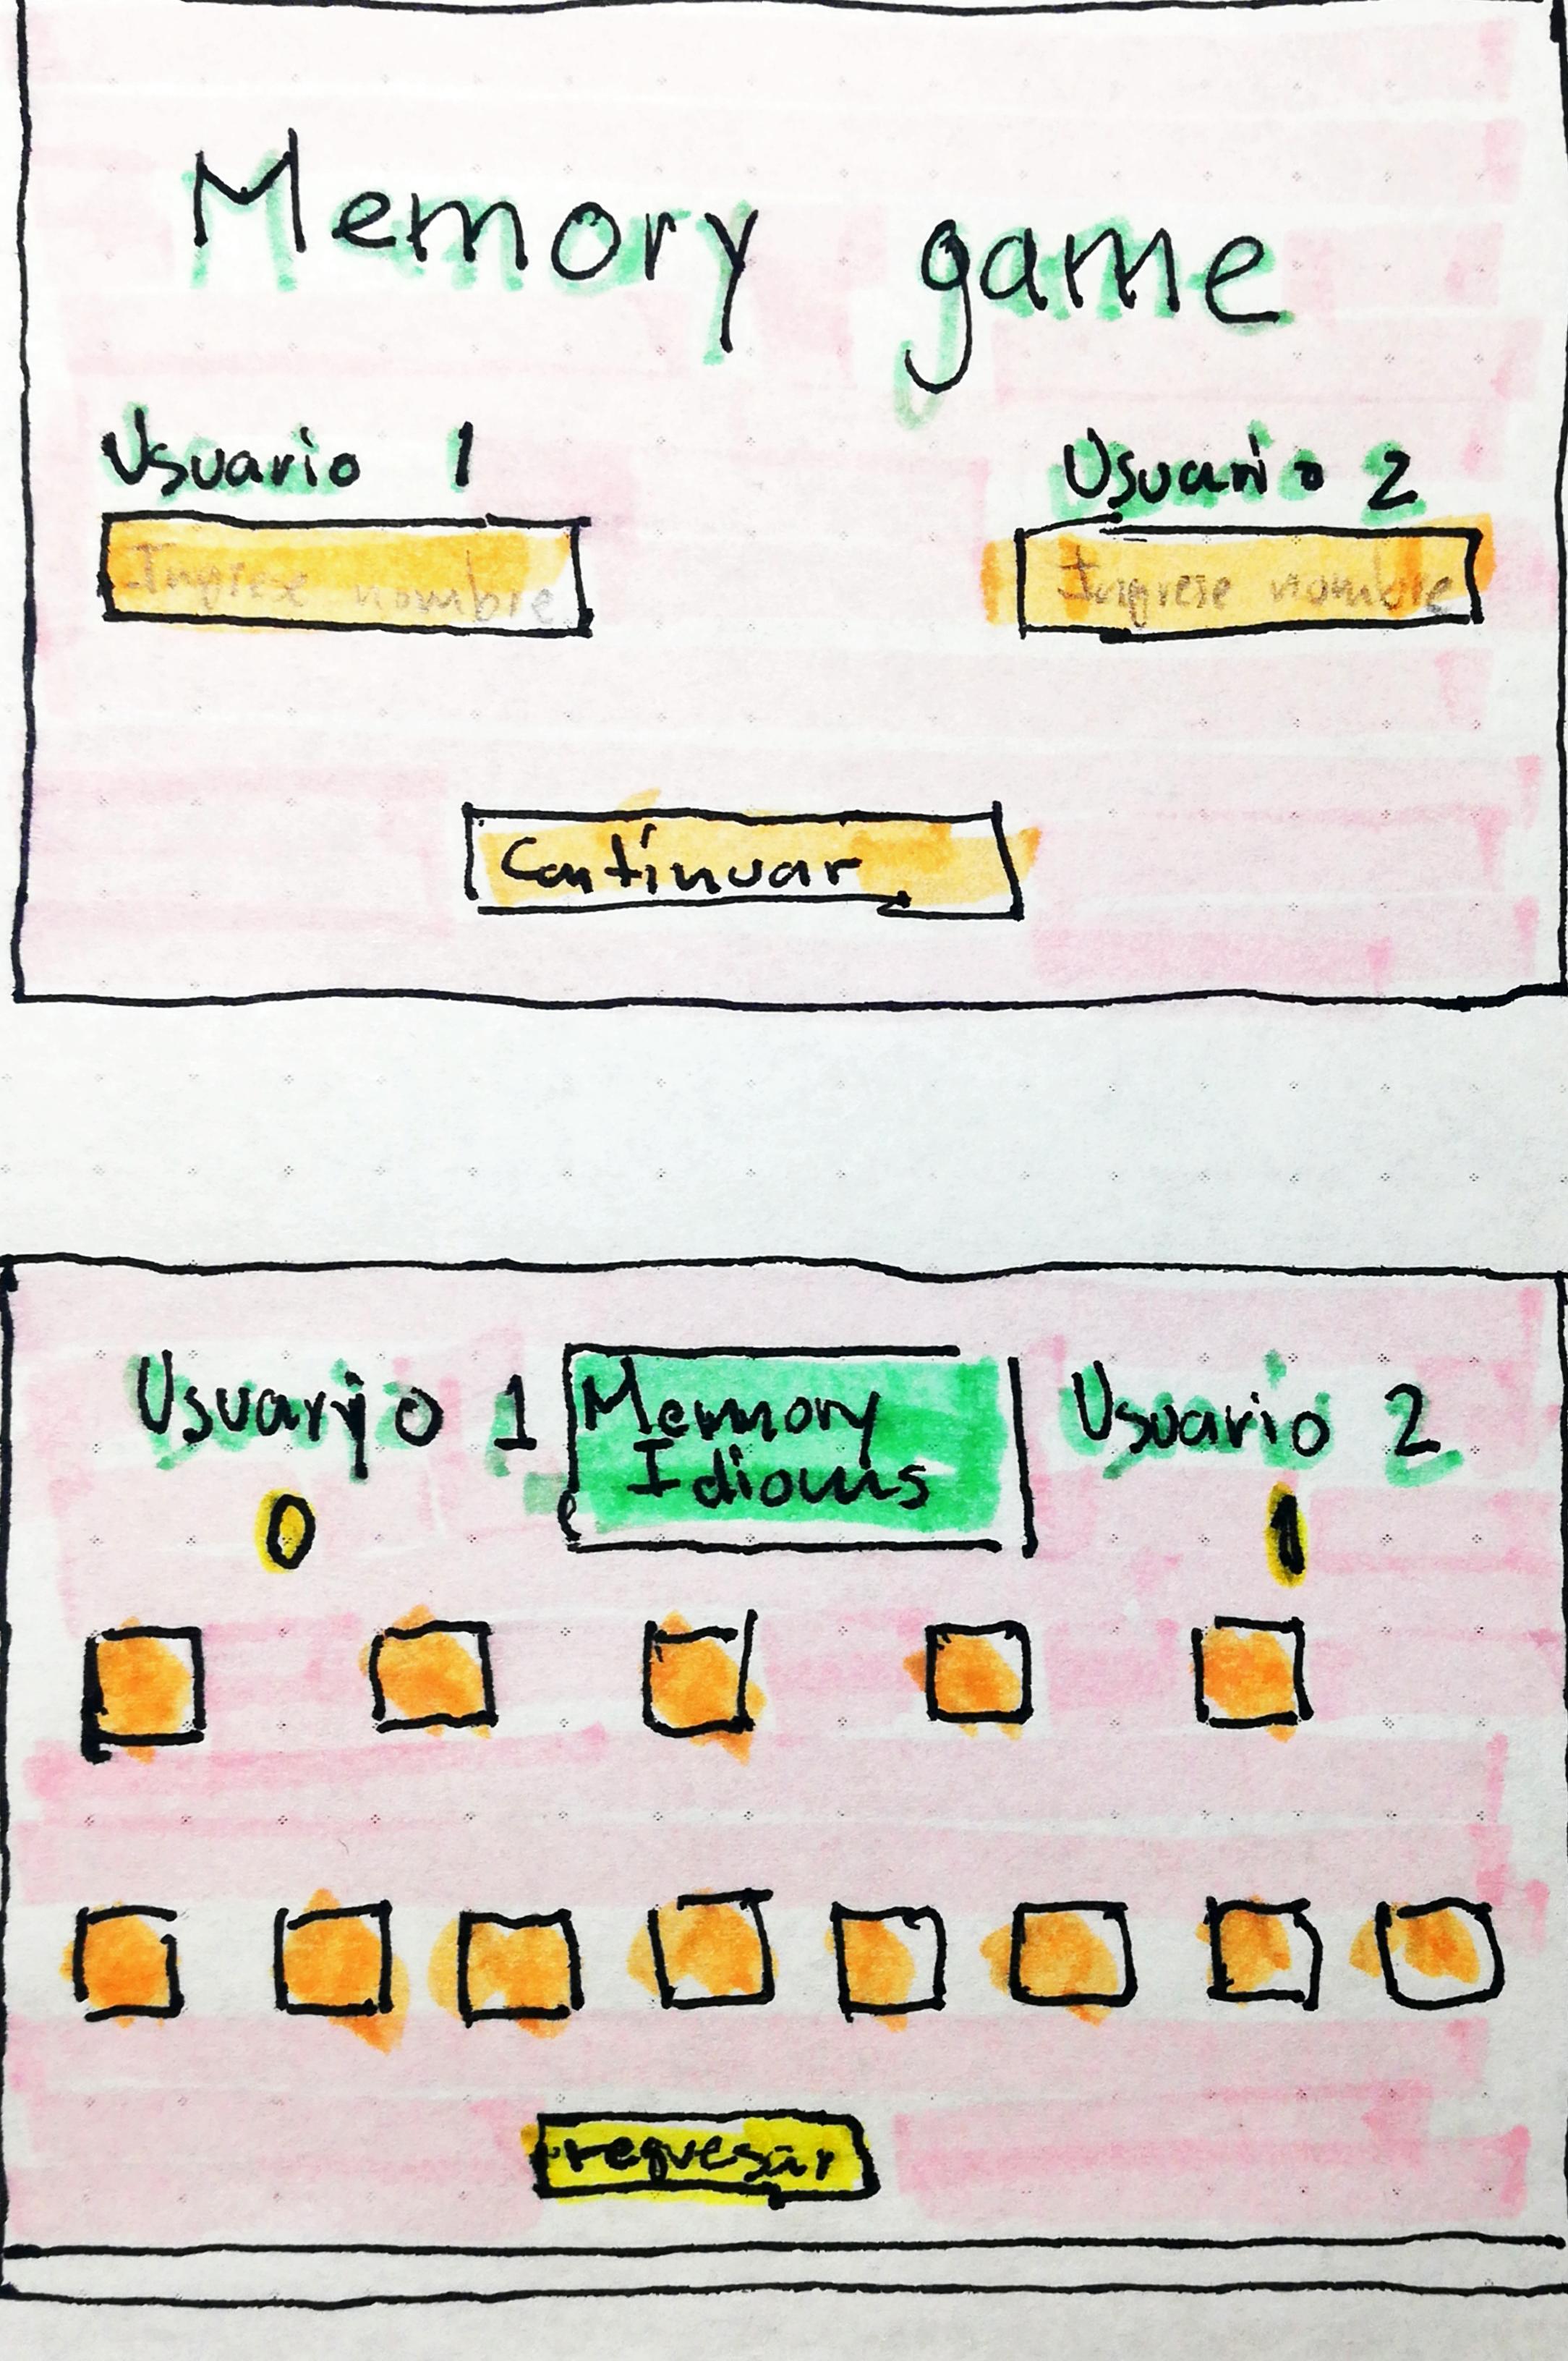 Memory game
Usuario 1
Usuario 2
Ingrese nombre
Ingrese nombre
Continuar
Usuario 1
Memory
Idioms
Usuario 2
0
1
regresar